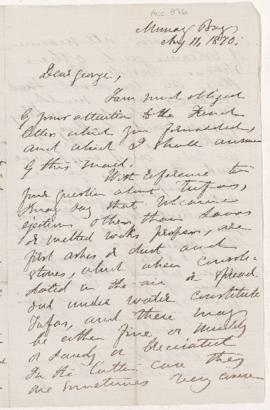 Murray Bay
Aug 11, 1870.
Dear George,
I am much obliged
by your attention to the French
letter which you forwarded,
and which I shall answer
by this mail.
With reference to
your question about tufas,
I may say that Volcanic
ejections other than lavas
or melted rocks proper, are
first ashes & dust and
stones, which when consoli-
dated in the air or spread
out under water constitute
Tufas, and these may
be either fine or muddy
or sandy or brecciated
In the latter case they
are sometimes very coarse